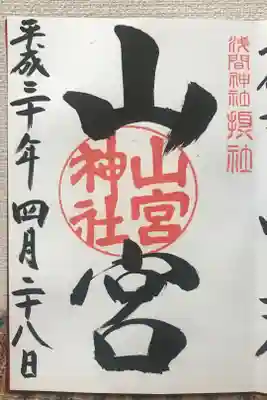 浅間神社摂社
山宮
山宮
神社
平成三十年四月二十八日